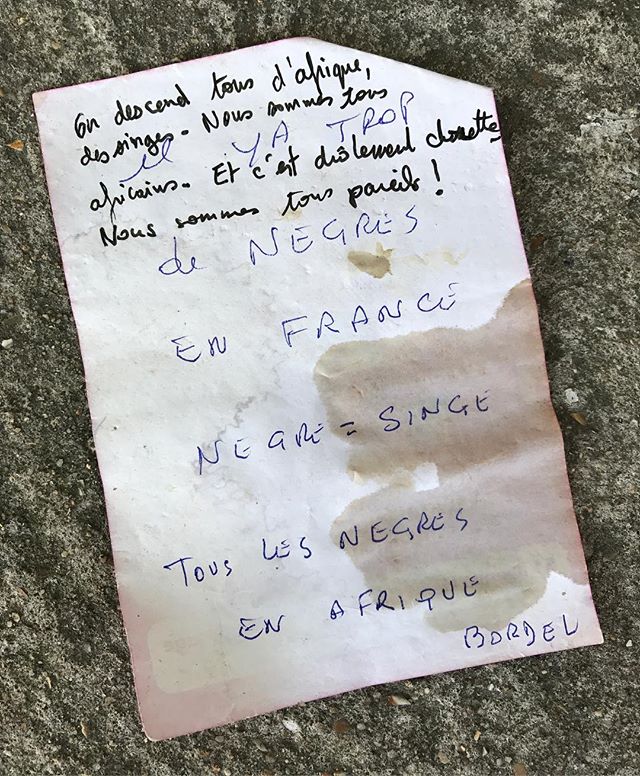 On descend tous d'afrique,
des singes. Nous sommes tous
il YA TROP
africains. Et c'est drôlement chouette
Nous sommes tous pareils !
de NEGRES
EN FRANCE
NEGRE = SINGE
TOUS LES NEGRES
EN AFRIQUE
BORDEL